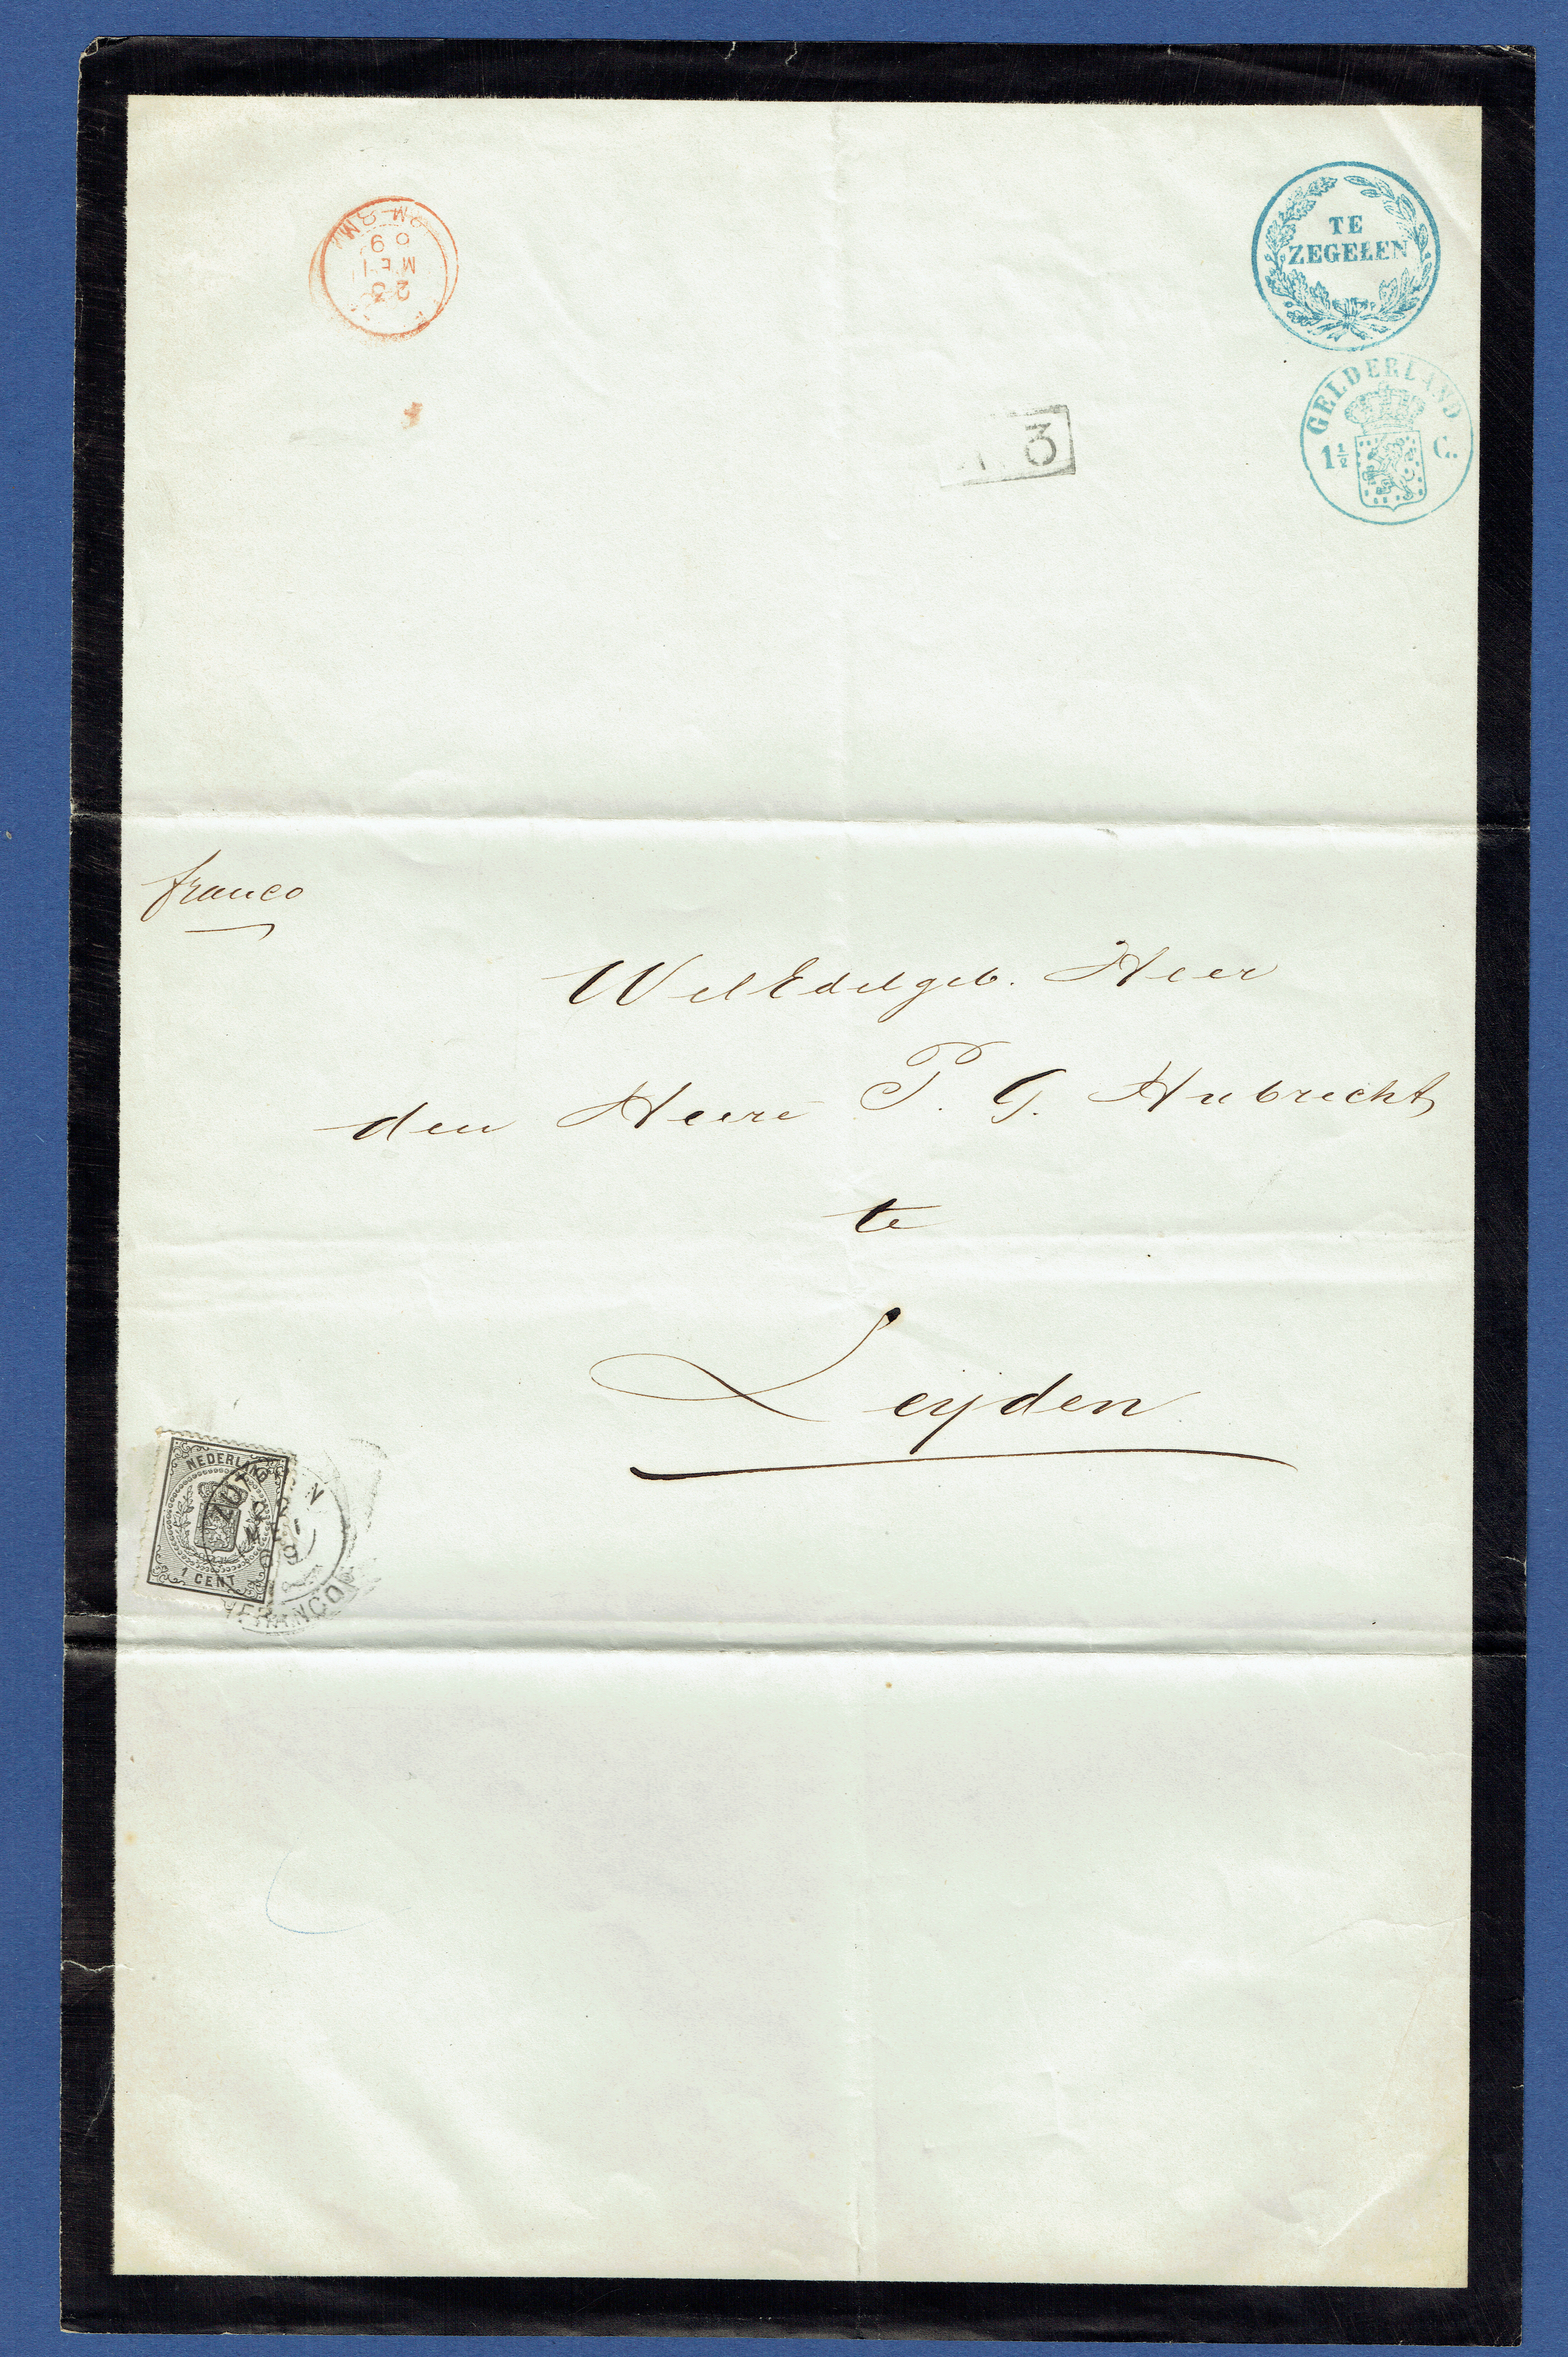 TE
ZEGELEN
GELDERLAND
1½ C.
23
MEI
69
3
franco
WelEdelgeb. Heer
den Heere P. G. Hubrecht
te
Leyden
NEDERLAND
1 CENT
ZUTPHEN
FRANCO